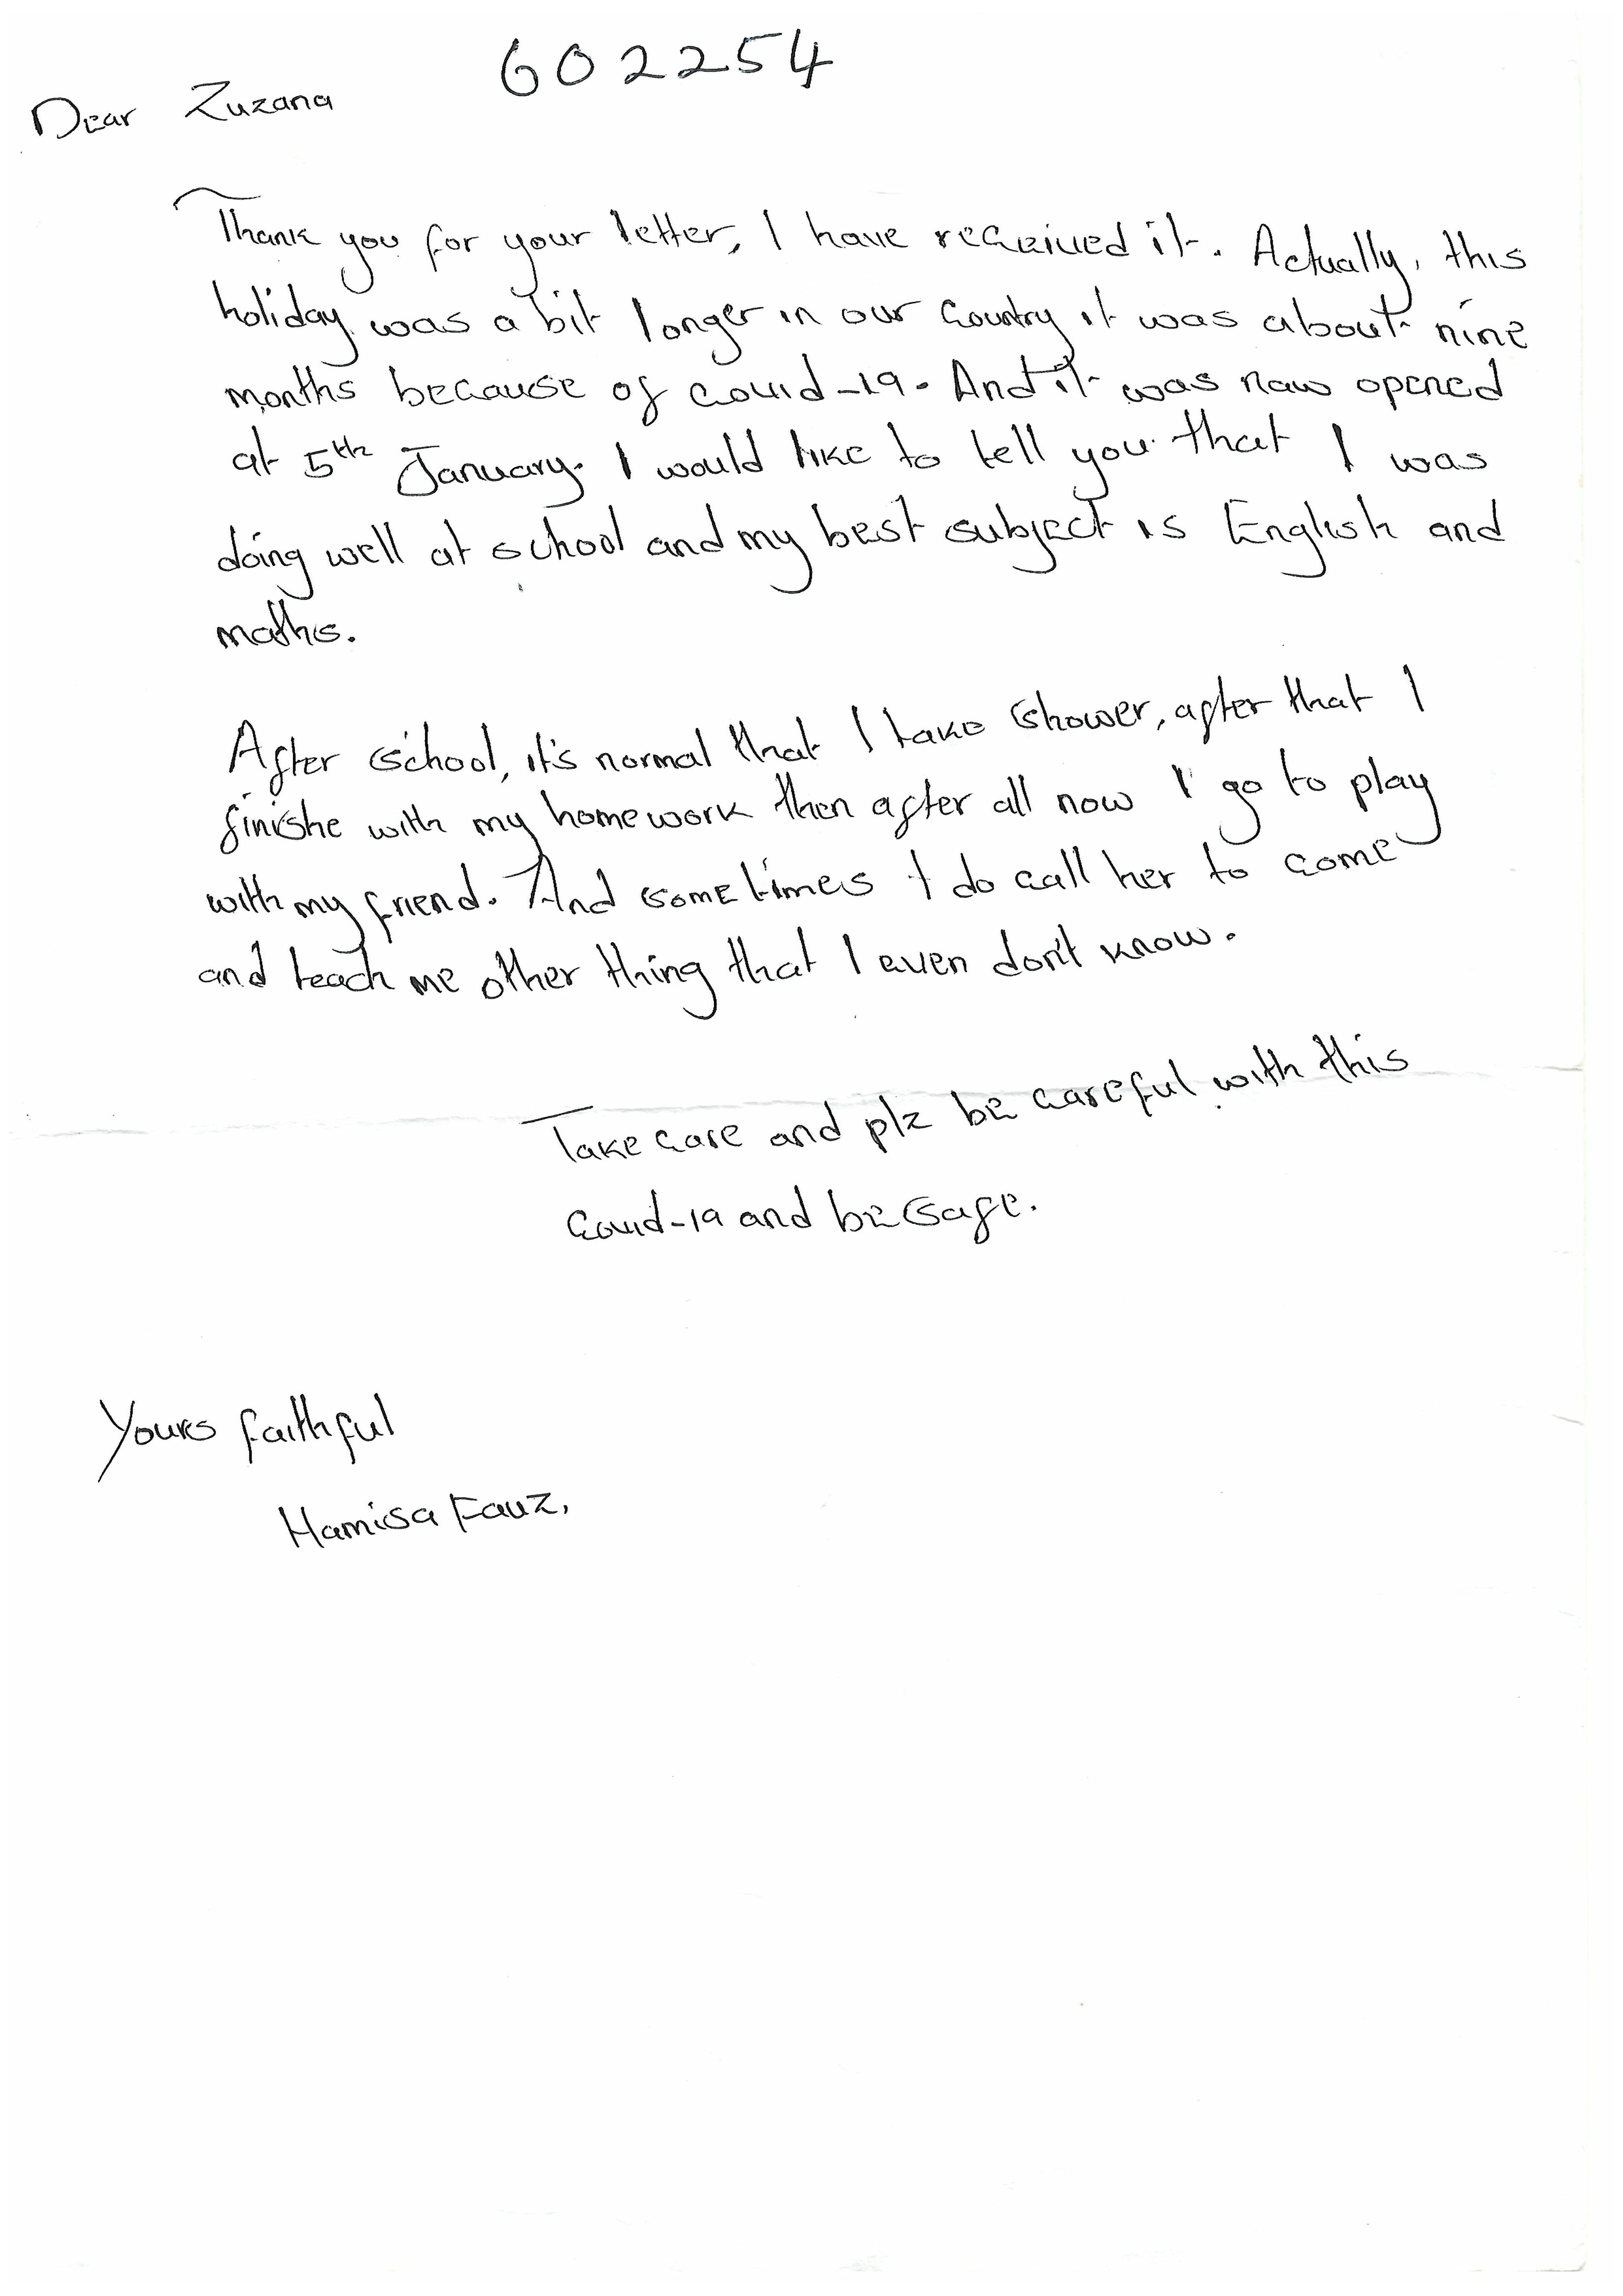 602254
Dear Zuzana
Thank you for your letter, I have received it. Actually, this
holiday was a bit longer in our country it was about nine
months because of covid-19. And it was now opened
at 5th January. I would like to tell you that I was
doing well at school and my best subject is English and
maths.
After school, it's normal that I take shower, after that I
finishe with my homework then after all now I go to play
with my friend. And sometimes I do call her to come
and teach me other thing that I even don't know.
Take care and plz be careful with this
Covid-19 and be safe.
Yours faithful
Hamisa Fauz.